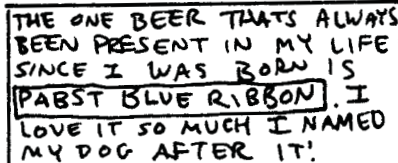 THE ONE BEER THATS ALWAYS
BEEN PRESENT IN MY LIFE
SINCE I WAS BORN IS
PABST BLUE RIBBON. I
LOVE IT SO MUCH I NAMED
MY DOG AFTER IT!